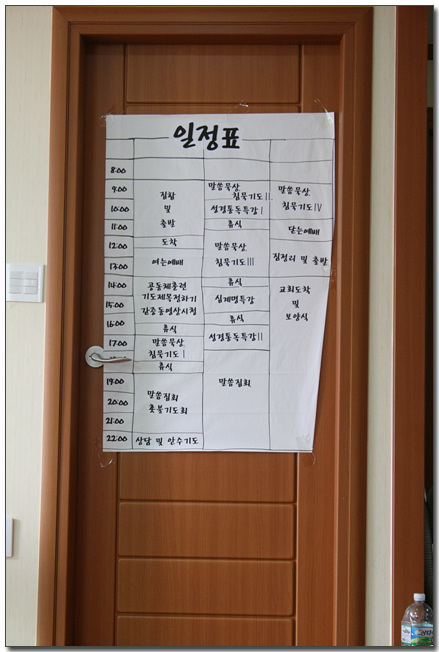 일정표
8:00
9:00
10:00
11:00
12:00
13:00
14:00
15:00
16:00
17:00
19:00
20:00
21:00
22:00
집합
및
출발
도착
여는예배
공동체훈련
기도제목정하기
각종동영상시청
휴식
말씀묵상
침묵기도 I
휴식
말씀집회
촛불기도회
상담 및 안수기도
말씀묵상
침묵기도 II
성경통독특강 I
휴식
말씀묵상
침묵기도 III
휴식
십계명특강
휴식
성경통독특강 II
말씀집회
말씀묵상
침묵기도 IV
닫는예배
짐정리 및 출발
교회도착
및
보양식